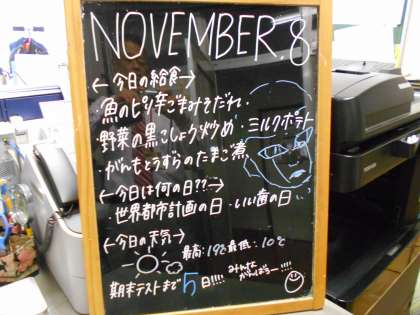 NOVEMBER.8
<今日の給食>
・魚のピリ辛ごまみそだれ・
・野菜の黒こしょう炒め・ミルクポテト
・がんもとうずらのたまご煮
<今日は何の日??>
・世界都市計画の日・いい歯の日
<今日の天気>
最高:19℃最低:10℃
期末テストまで5日!!!! みんながんばろー!!!!